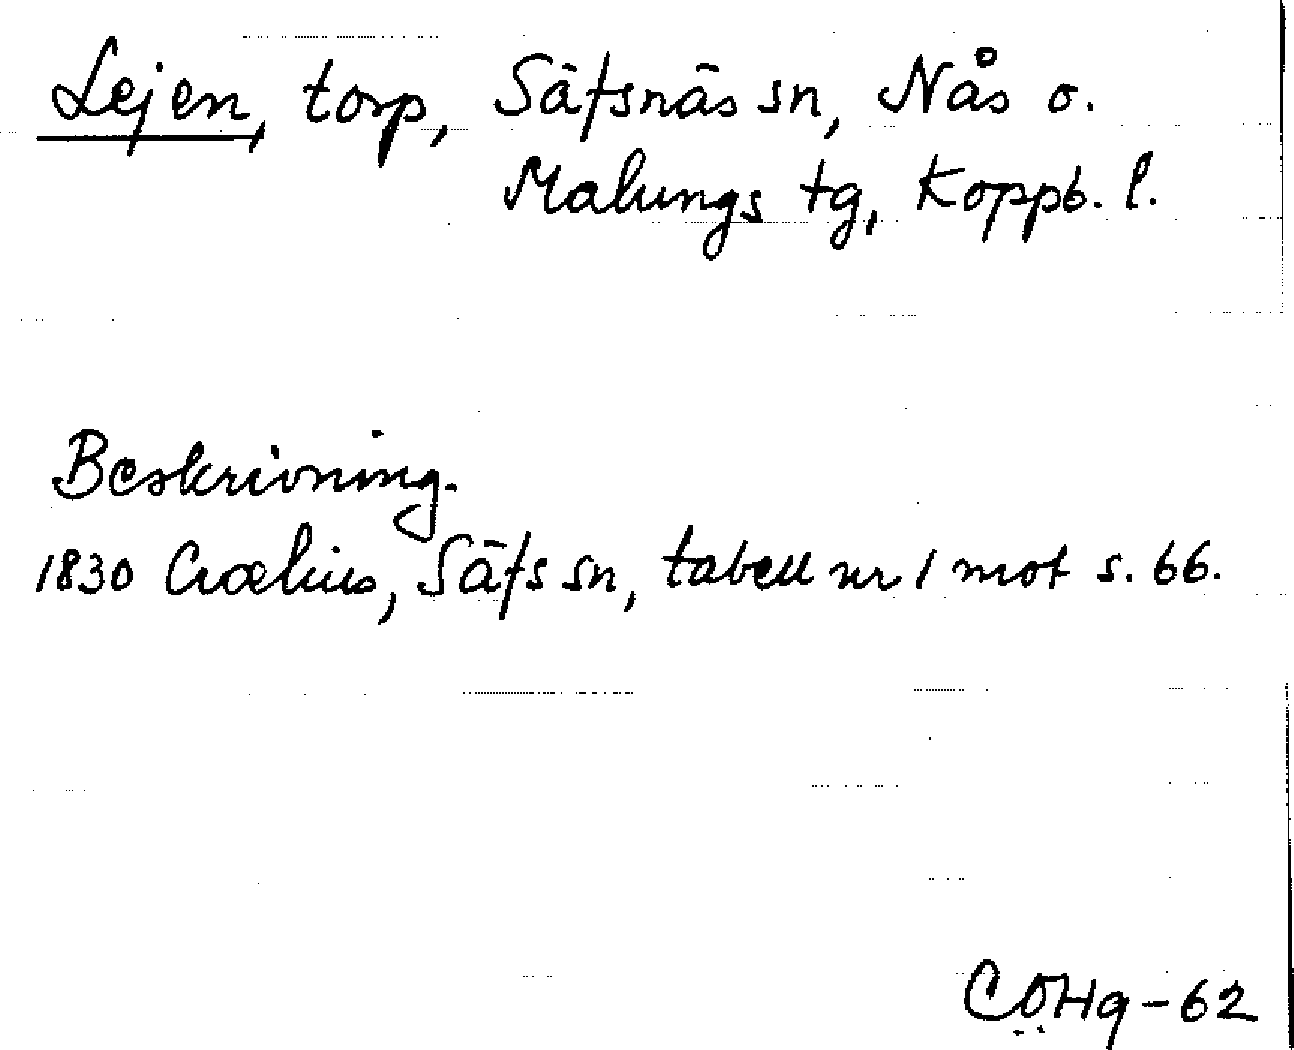 Lejen, torp, Säfsnäs sn, Nås o.
Malungs tg, Koppb. l.
Beskrivning.
1830 Crælius, Säfs sn, tabell nr 1 mot s. 66.
CÖHg-62